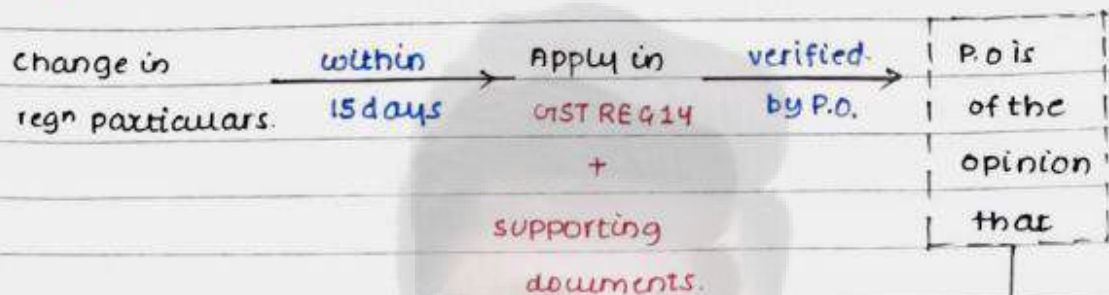 Change in
regn particulars.
within
15 days
Apply in
GST REG 14
+
supporting
documents.
verified
by P.O.
P.O is
of the
opinion
that